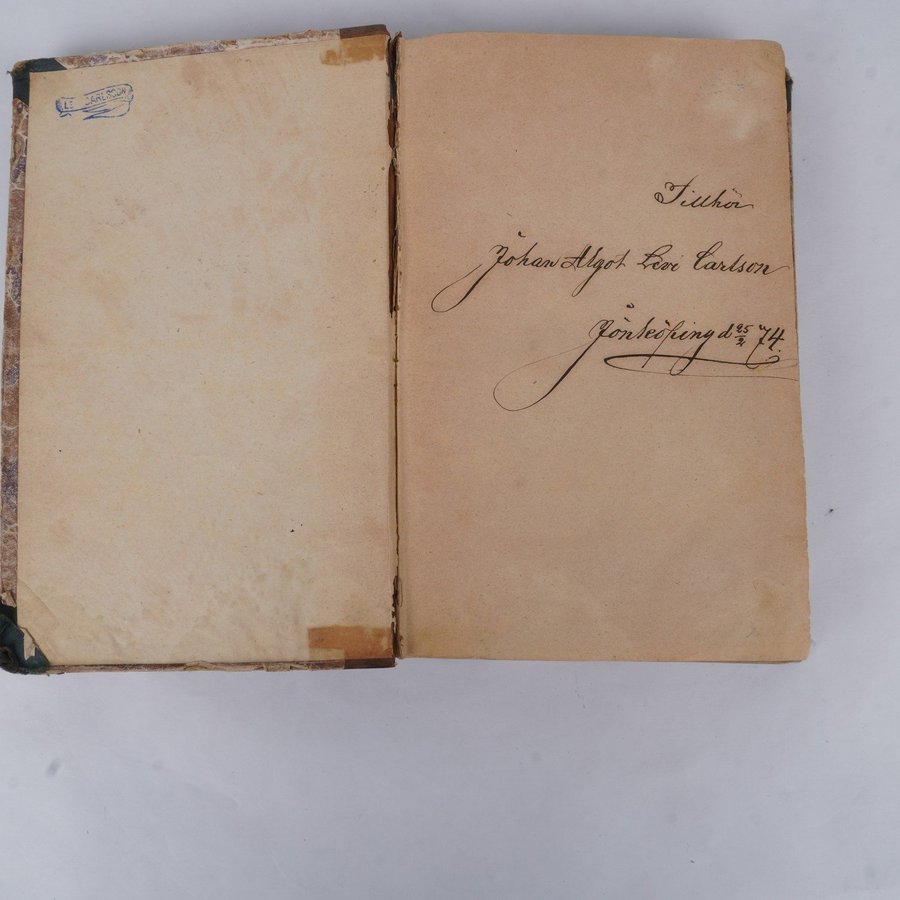 LE CARLSSON
Tillhör
Johan Algot Levi Carlson
Jönköping d 25/2 74.